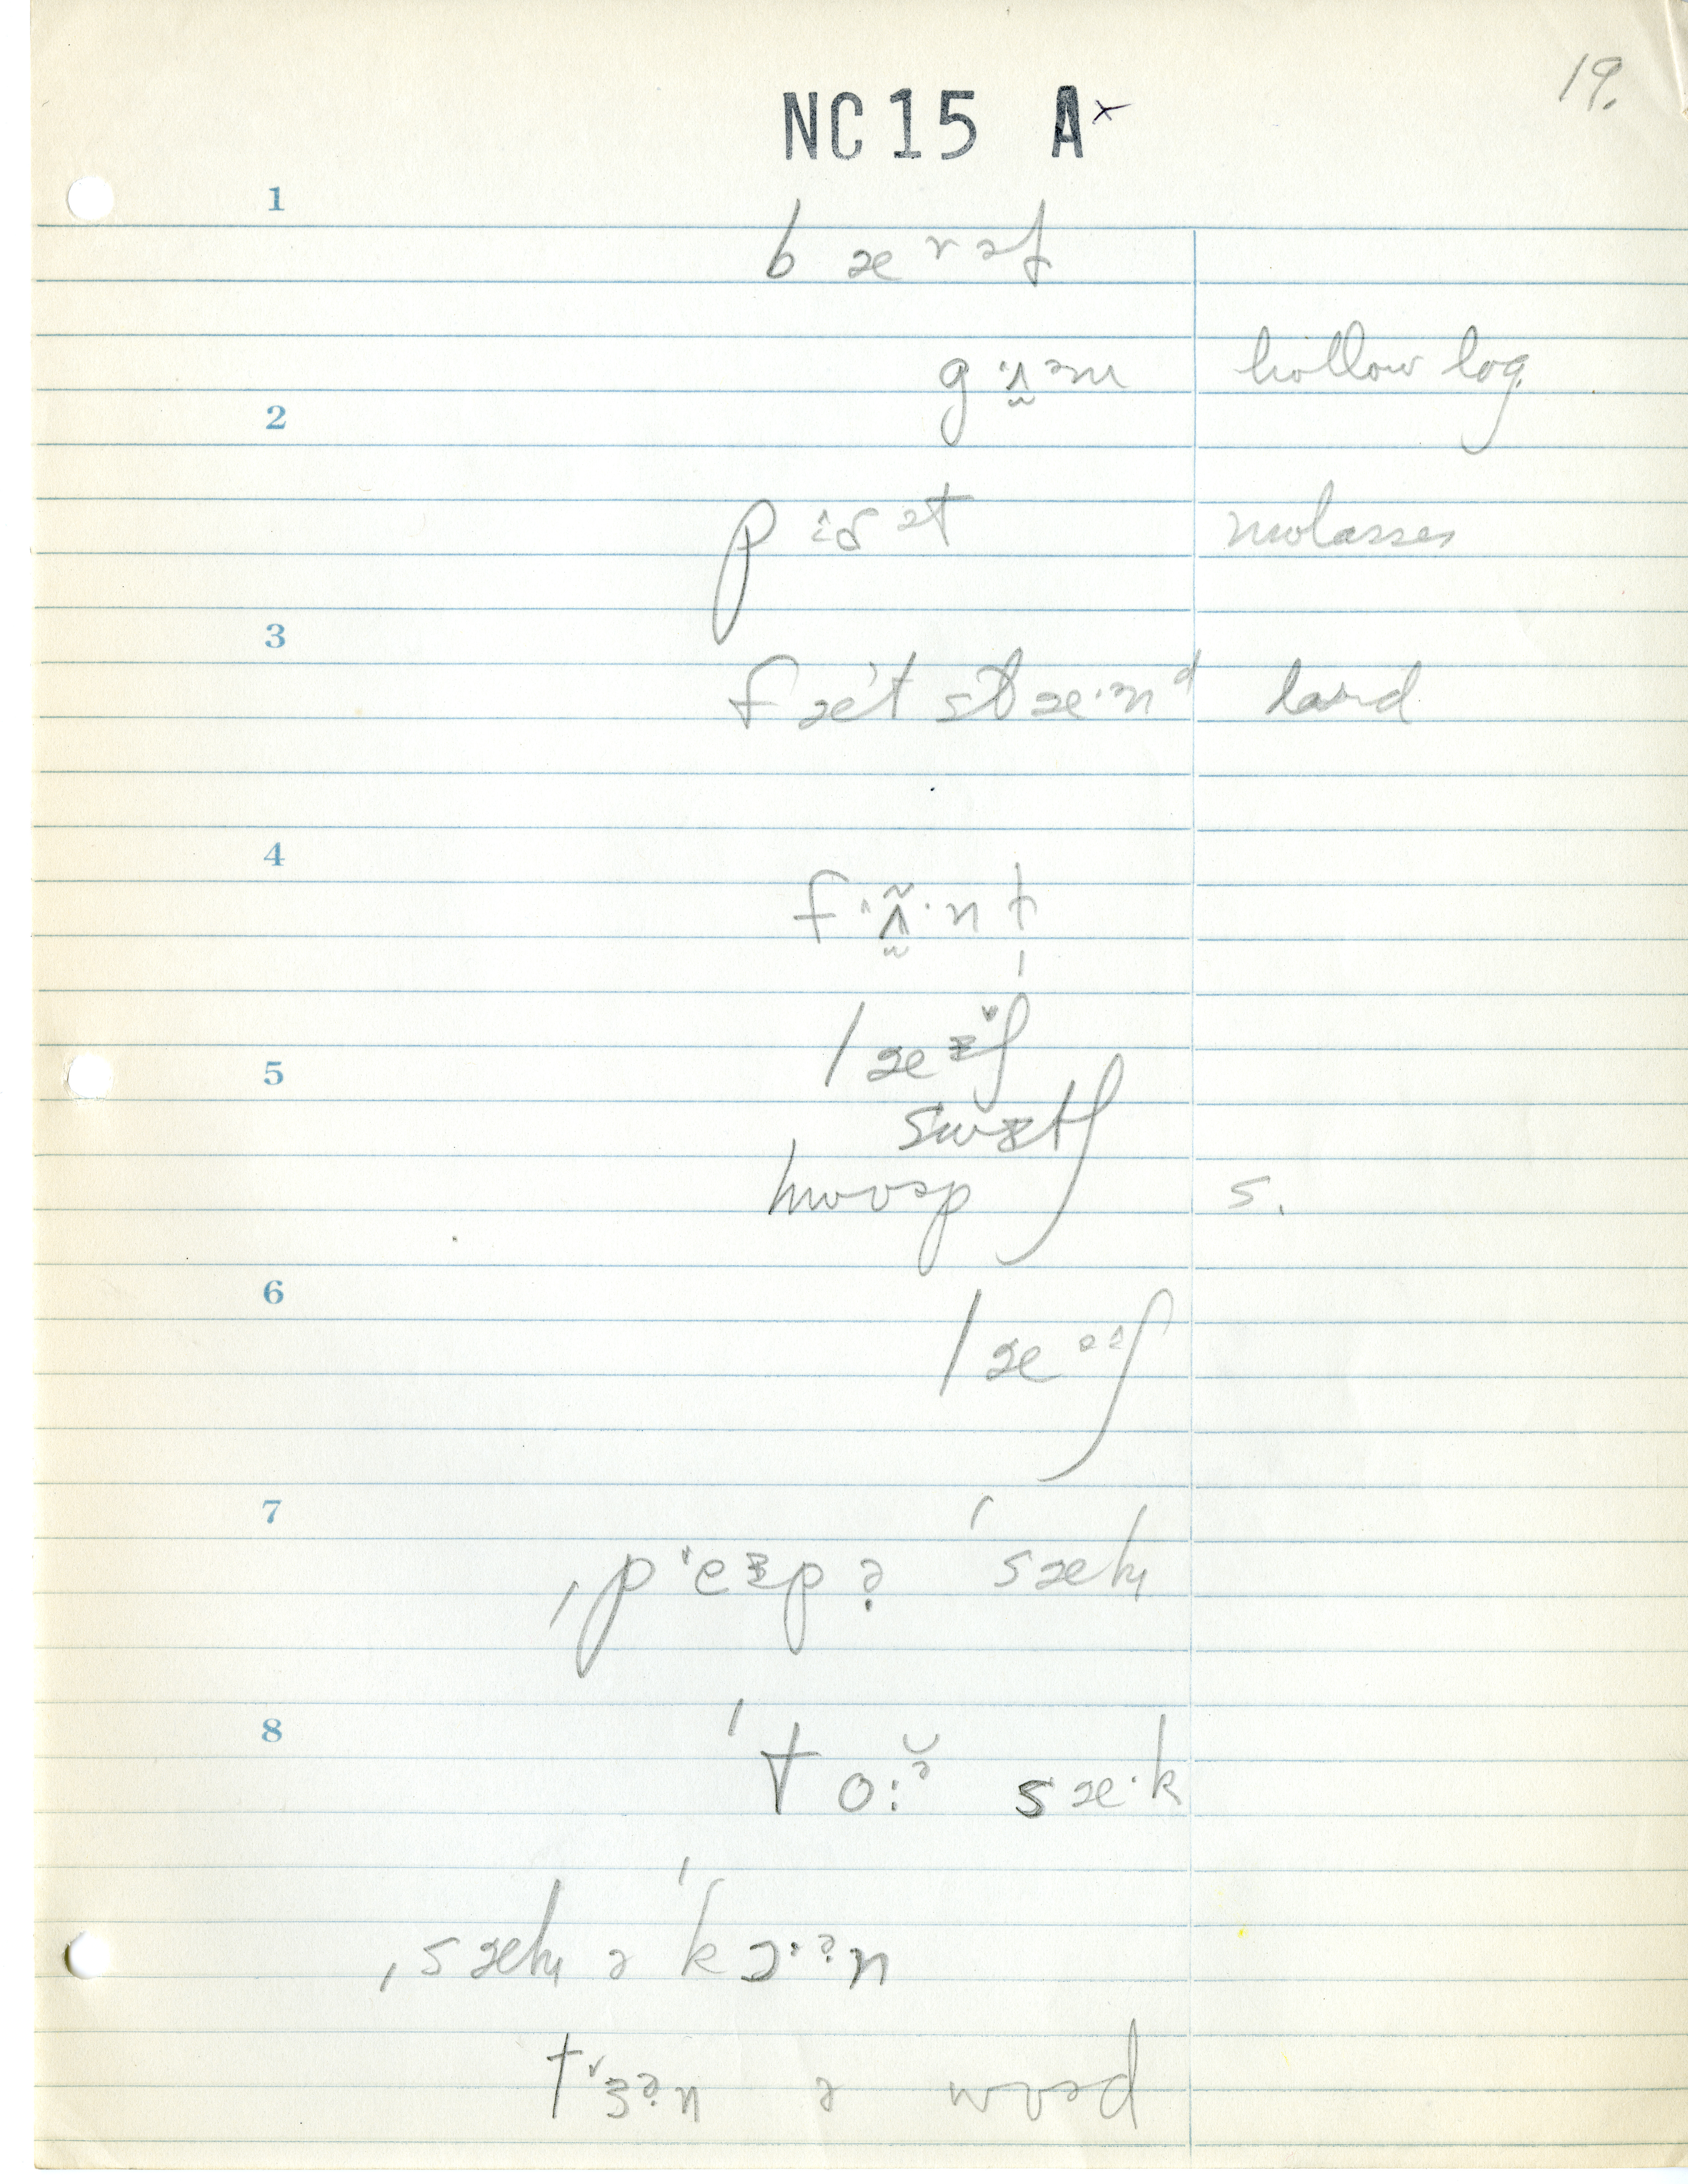 19.
NC15 A×
1
b æ r ə l
g ʌ̰ ə m hollow log
2
p i g ə t molasses
3
f æ t s t æ· n d lard
4
f ʌ̰̃· n t
l æ ʃ
5
s w ɪ t ʃ
h w ʊ ə p s.
6
l æ ʃ
7
ˌp e p ə ˈs æ k
8
ˈt o: ə s æ· k
ˌs æ k ə ˈk ɔ· ə n
t ɜ ə n ə w ʊ ə d